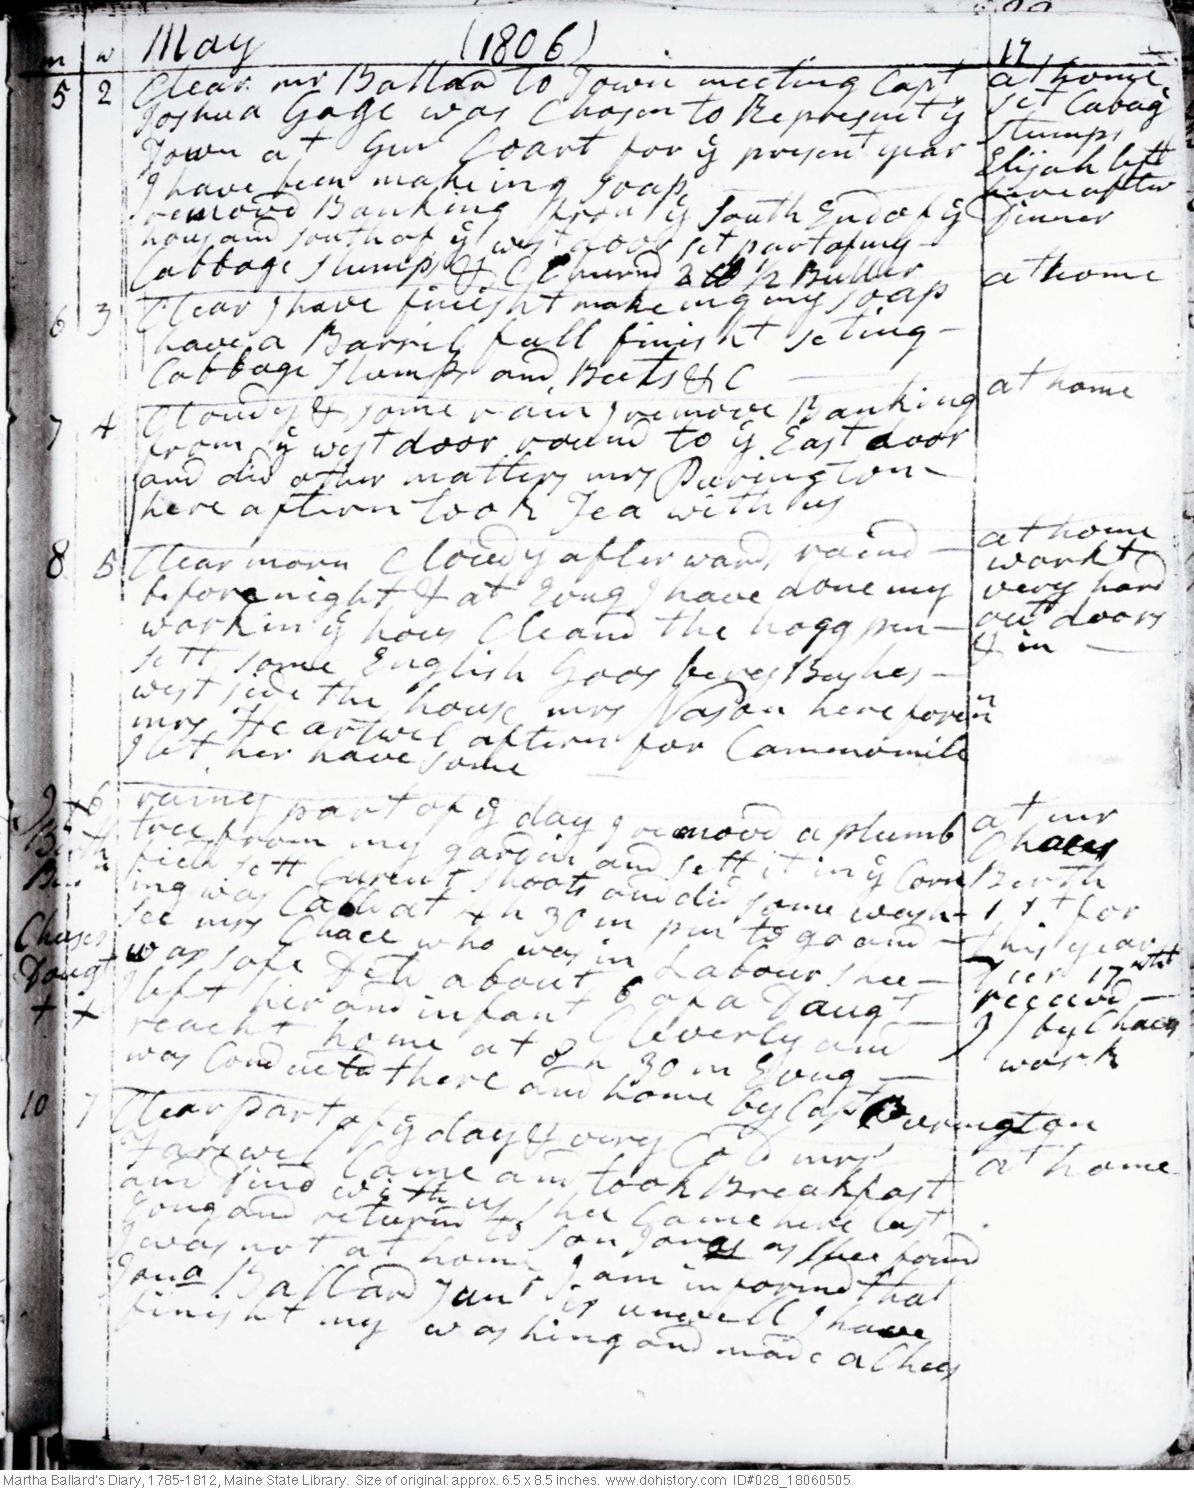 m w May (1806) 17
5 2 Clear. mr Ballard to Town meeting Capt
Joshua Gage was Chosen to Represent ÿ
Town at Gen Coart for ÿ present year
I have been makeing Soap
removd Banking from ÿ South End of ÿ
hous and south of ÿ west door set part of my
Cabbage Stumps &C Churnd 2 lb 1/2 Butter
at home
set Cabag
Stumps
Elijah left
here after
Dinner
6 3 Clear I have finisht makeing my Soap
have a Barril full finisht seting
Cabbage Stumps and Beets &C
at home
7 4 Cloudy & some rain I remove Banking
from ÿ west door round to ÿ East door
and did other matters mrs Purington
here aftern took Tea with us
at home
8 5 Clear morn Cloudy afterward, raind
before night & at Evng I have done my
work in ÿ hous Cleand the hogg pen
sett some English Goos berry Bushes
west side the house mrs Nason here foren
mrs Heartwel aftern for Cammomile
I let her have some
at home
workt
very hard
out doors
& in
9 6 rainy part of ÿ day I removd a plumb
tree from my gardin and sett it in ÿ Corn
field sett Curent Shoots and did some wash-
ing was Calld at 4 h 30 m pm to go and
see mrs Chace who was in Labour shee
was safe Deld about 6 of a Daugt
I left her and infant Cleverly and
reacht home at 8 h 30 m Evng
was Conducted there and home by Capt Purington
Birth
Chases
Daugt
+ +
at mr
Chases
Birth
1st for
this year
Her 17th
receevd
by Chacs
work
10 7 Clear part of ÿ day & very Cold mrs
Farewel Came and took Breakfast
and Dind with us shee Came here last
Evng and returnd to son Jonas as shee found
I was not at home I am informd that
Jona Ballard Junr is unwell I have
finisht my washing and made a Chees
at home
Martha Ballard's Diary, 1785-1812, Maine State Library. Size of original: approx. 6.5 x 8.5 inches. www.dohistory.com ID#028_18060505